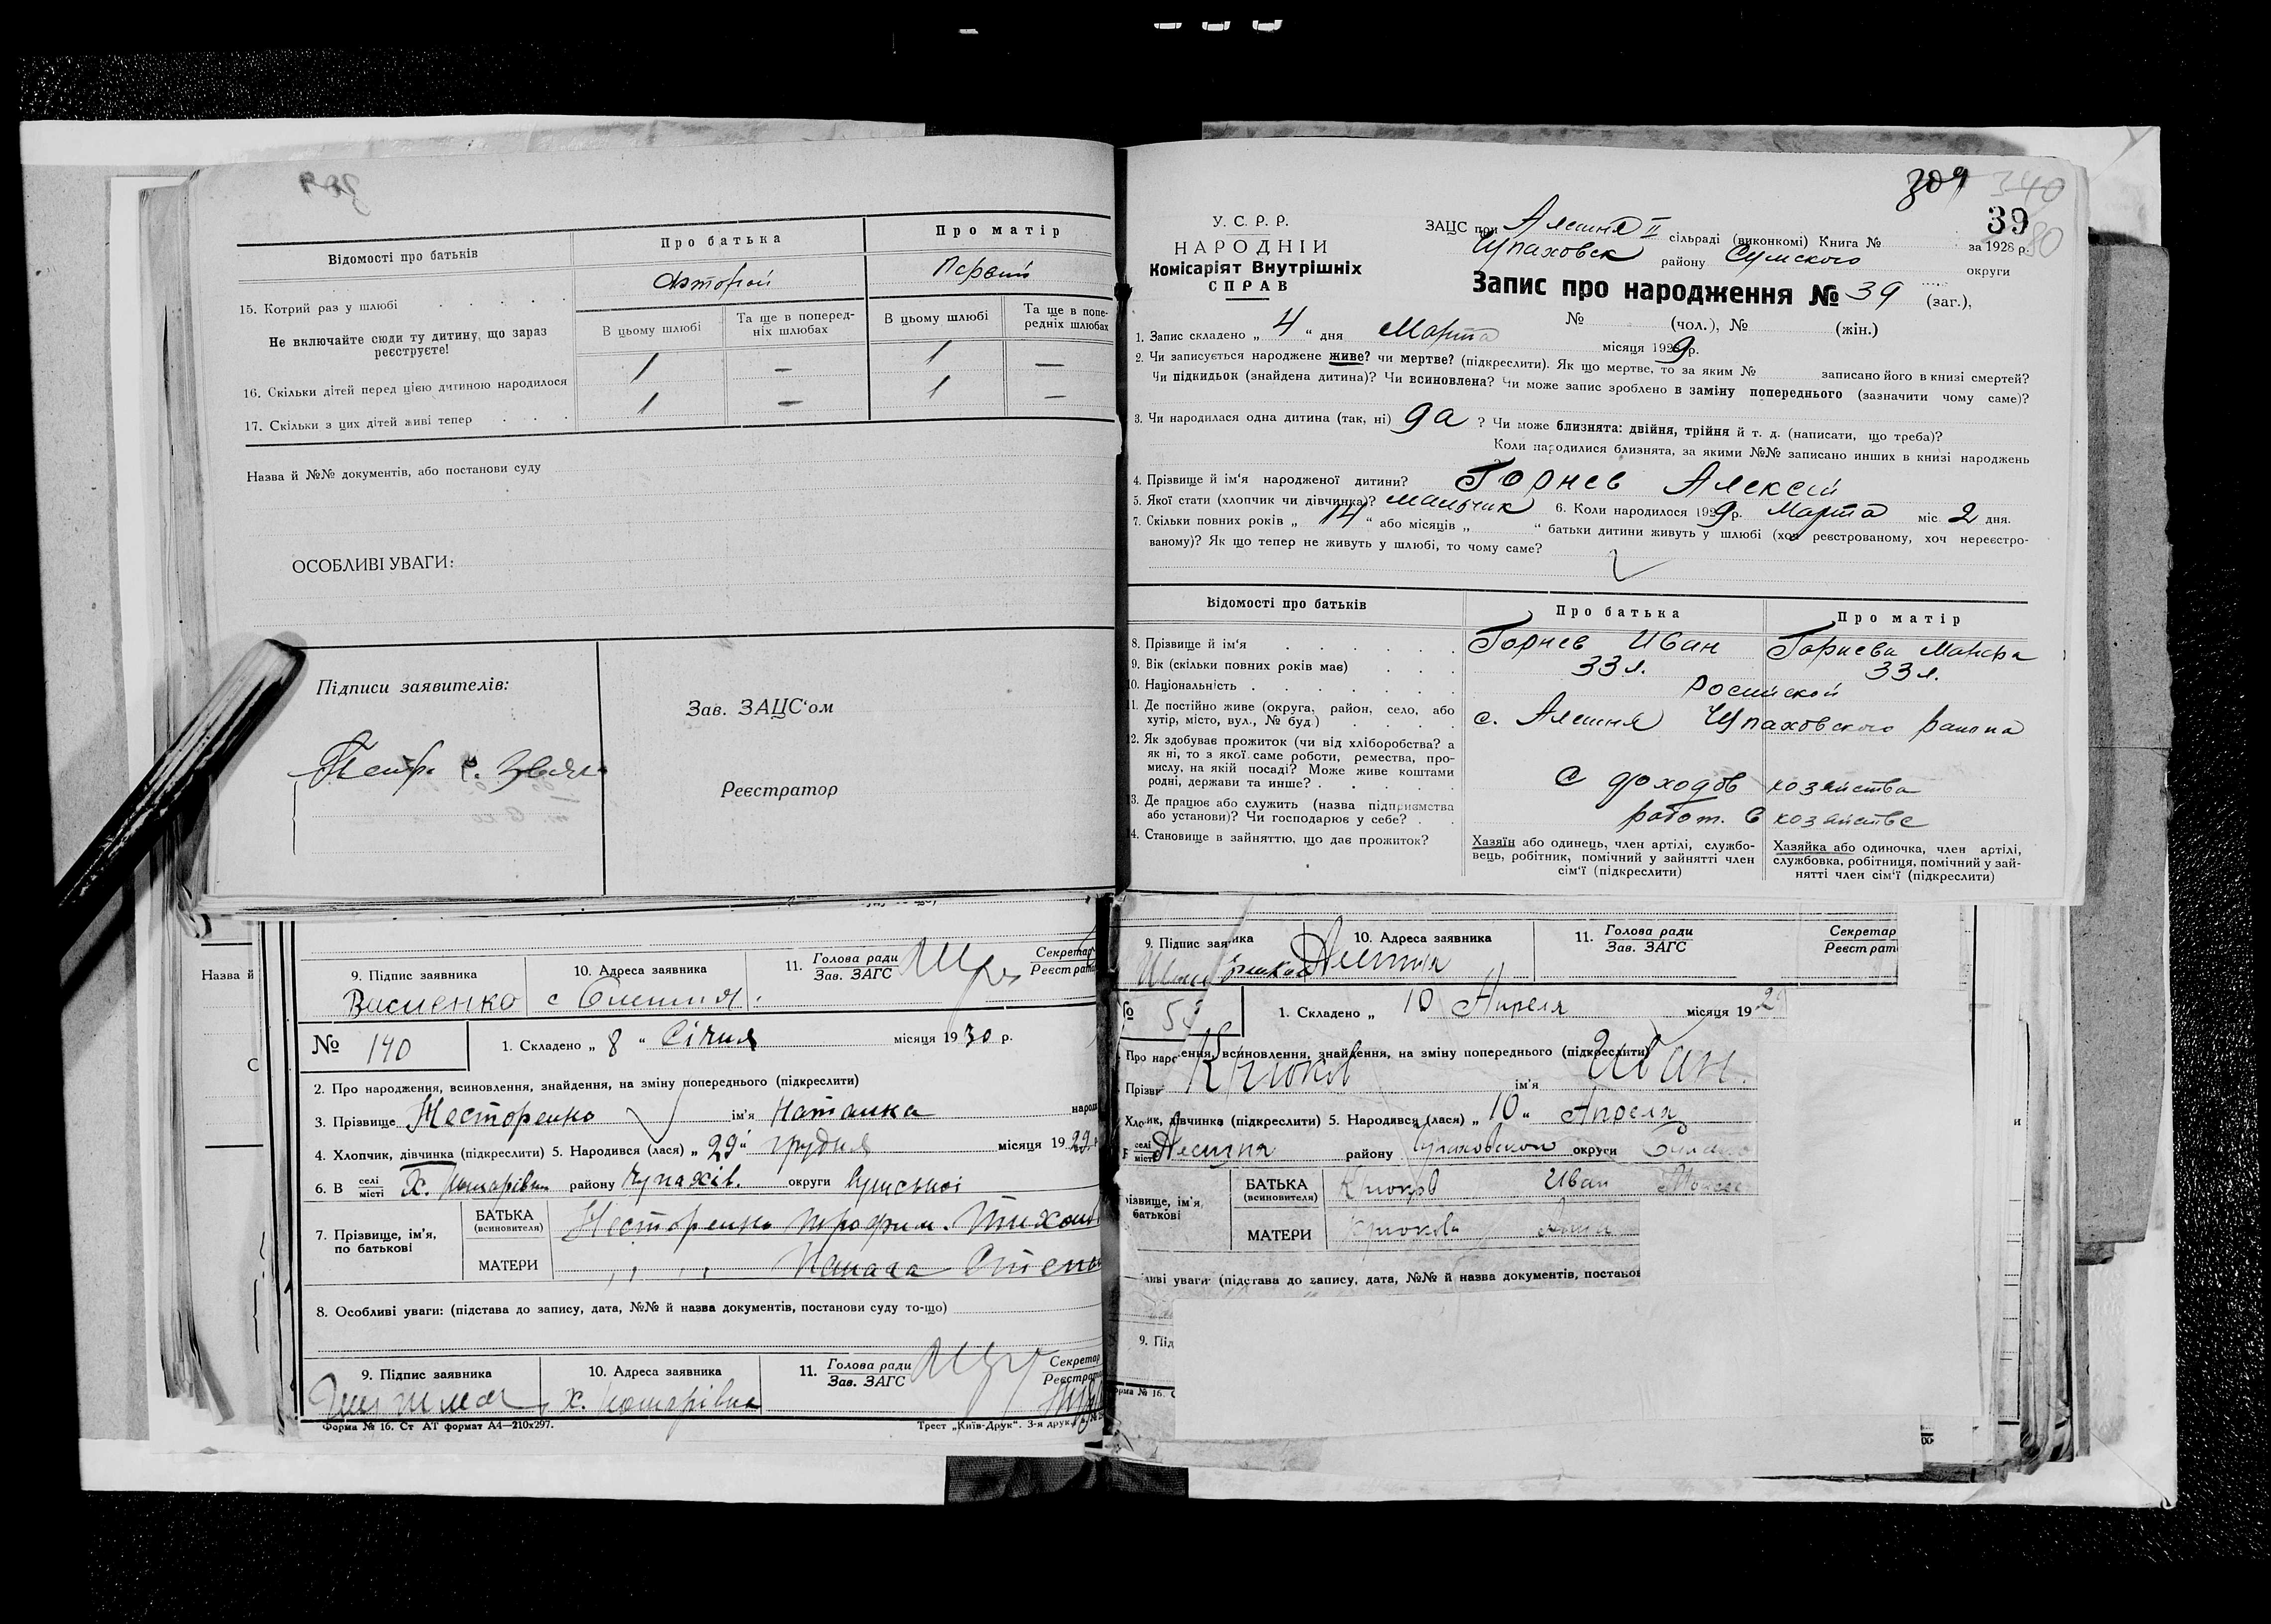 Відомості про батьків
Про батька
Про матір
15. Котрий раз у шлюбі
Второй
Первый
Не включайте сюди ту дитину, що зараз
реєструєте!
В цьому шлюбі
Та ще в поперед-
ніх шлюбах
В цьому шлюбі
Та ще в попе-
редніх шлюбах
16. Скільки дітей перед цією дитиною народилося
1 — 1 —
17. Скільки з цих дітей живі тепер
1 — 1 —
Назва й №№ документів, або постанови суду
ОСОБЛИВІ УВАГИ:
Підписи заявителів:
Зав. ЗАЦС'ом
Реєстратор
309 340
39
80
У. С. Р. Р.
НАРОДНІЙ
Комісаріят Внутрішніх
СПРАВ
ЗАЦС при Алешня II сільраді (виконкомі) Книга № за 1928 р.
Чупаховск району Сумского округи
Запис про народження № 39 (заг.),
№ (чол.), № (жін.)
1. Запис складено „ 4 “ дня Марта місяця 1929 р.
2. Чи записується народжене живе? чи мертве? (підкреслити). Як що мертве, то за яким № записано його в книзі смертей?
Чи підкидьок (знайдена дитина)? Чи всиновлена? Чи може запис зроблено в заміну попереднього (зазначити чому саме)?
3. Чи народилася одна дитина (так, ні) да ? Чи може близнята: двійня, трійня й т. д. (написати, що треба)?
Коли народилися близнята, за якими №№ записано инших в книзі народжень
?
4. Прізвище й ім'я народженої дитини? Горнев Алексей
5. Якої статі (хлопчик чи дівчинка)? мальчик 6. Коли народилося 1929 р. Марта міс. 2 дня.
7. Скільки повних років „ 14 “ або місяців „ “ батьки дитини живуть у шлюбі (хоч реєстрованому, хоч нереєстро-
ваному)? Як що тепер не живуть у шлюбі, то чому саме?
Відомості про батьків
Про батька
Про матір
8. Прізвище й ім'я
Горнев Иван
Горнева
9. Вік (скільки повних років має)
33 л.
33 л.
10. Національність
Росийской
11. Де постійно живе (округа, район, село, або
хутір, місто, вул., № буд.)
с. Алешня Чупаховского района
12. Як здобуває прожиток (чи від хліборобства? а
як ні, то з якої саме роботи, ремества, про-
мислу, на якій посаді? Може живе коштами
родні, держави та инше?
С доходов хозяйства
13. Де працює або служить (назва підприємства
або установи)? Чи господарює у себе?
работ. в хозяйстве
14. Становище в зайняттю, що дає прожиток?
Хазяїн або одинець, член артілі, службо-
вець, робітник, помічний у зайнятті член
сім'ї (підкреслити)
Хазяйка або одиночка, член артілі,
службовка, робітниця, помічний у зай-
нятті член сім'ї (підкреслити)
Назва й
9. Підпис заявника
10. Адреса заявника
11. Голова ради
Зав. ЗАГС
Секретар
Реєстрат
Василенко
№ 140
1. Складено „ 8 “ Січня місяця 1930 р.
2. Про народження, всиновлення, знайдення, на зміну попереднього (підкреслити)
3. Прізвище Несторенко ім'я Наталка народ
4. Хлопчик, дівчинка (підкреслити) 5. Народився (лася) „ 29 “ грудня місяця 1929
6. В селі
місті Х. Комарівка району Чупахів. округи Сумської
7. Прізвище, ім'я,
по батькові
БАТЬКА
(всиновителя)
Несторенко Трофим
МАТЕРИ
8. Особливі уваги: (підстава до запису, дата, №№ й назва документів, постанови суду то-що)
9. Підпис заявника
10. Адреса заявника
11. Голова ради
Зав. ЗАГС
Секретар
Реєстрат
х. Комарівка
Форма № 16. Ст АТ формат А4—210x297.
Трест „Київ-Друк“. 3-я друк.
9. Підпис заявника
10. Адреса заявника
11. Голова ради
Зав. ЗАГС
Секретар
Реєстрат
Алешня
1. Складено „ 10 Апреля місяця 1929
Про народження, всиновлення, знайдення, на зміну попереднього (підкреслити)
Крюков ім'я Иван
дівчинка (підкреслити) 5. Народився (лася) „ 10 “ Апреля
селі
місті Алешня району Чупаховской округи
Прізвище, ім'я,
батькові
БАТЬКА
(всиновителя)
Крюков Иван
МАТЕРИ
Крюкова Анна
уваги (підстава до запису, дата, №№ й назва документів, постанов
9. Під